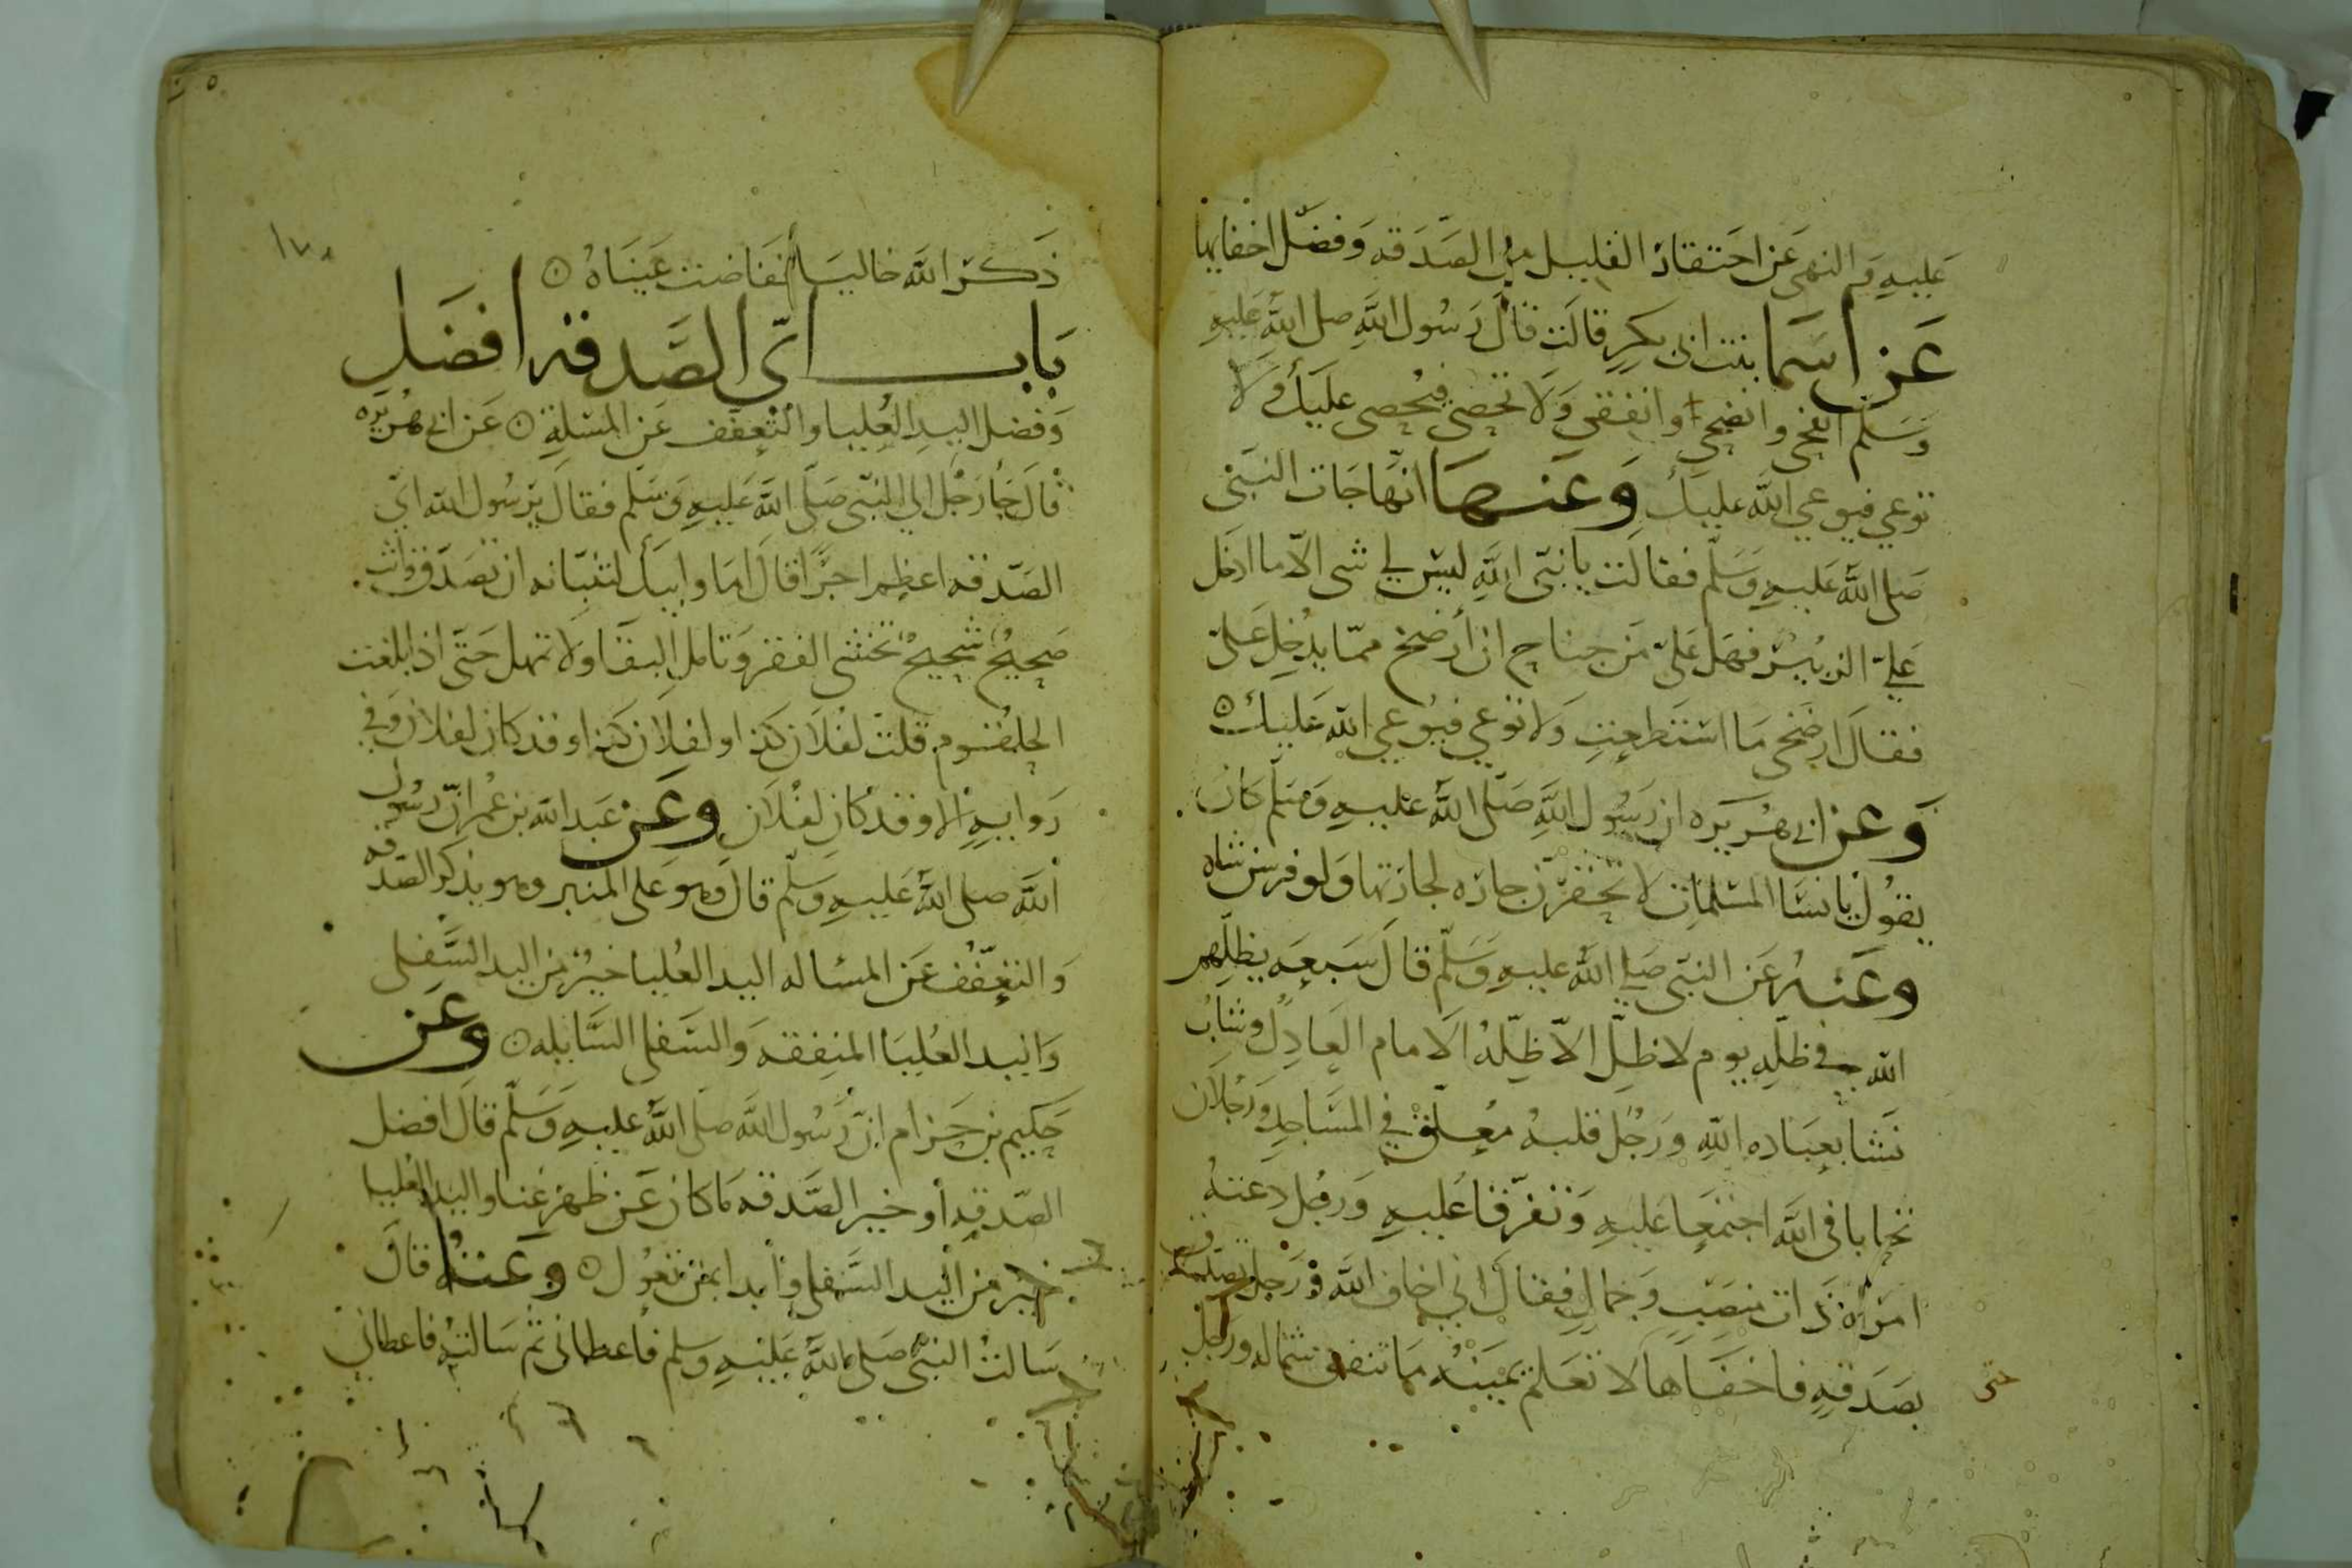 عليه والنهى عن احتقار القليل من الصدقه وفضل اخفايها
عن اسما بنت ابى بكر قالت قال رسول الله صلى الله عليه
وسلم انفحى وانضحى وانفقى ولا تحصى فيحصى عليك ولا
توعي فيوعي الله عليك وعنها انها جات النبي
صلى الله عليه وسلم فقالت يا نبى الله ليس لي شى الا ما ادخل
علي الزبير فهل على من جناح ان أرضخ مما يدخل على
فقال ارضخى ما استطعت ولا توعي فيوعي الله عليك
وعن ابى هريره ان رسول الله صلى الله عليه وسلم كان
يقول يا نسا المسلمات لا تحقرن جاره لجارتها ولو فرسن شاه
وعنه عن النبى صلى الله عليه وسلم قال سبعه يظلهم
الله في ظله يوم لا ظل الا ظله الامام العادل وشاب
نشا بعباده الله ورجل قلبه معلق في المساجد ورجلان
تحابا فى الله اجتمعا عليه وتفرقا عليه ورجل دعته
امراه ذات منصب وجمال فقال اني اخاف الله ورجل تصدق
بصدقه فاخفاها لا تعلم يمينه ما تنفق شماله ورجل
حتى
١٧٨
ذكر الله خاليا ففاضت عيناه
باب اى الصدقه افضل
وفضل اليد العليا والتعفف عن المسلة عن ابى هريره
قال جا رجل الي النبى صلى الله عليه وسلم فقال يرسول الله اي
الصدقه اعظم اجرا قال اما وابيك لتنبانه ان تصدق وانت
صحيح شحيح تخشى الفقر وتامل البقا ولا تمهل حتى اذا بلغت
الحلقوم قلت لفلان كذا ولفلان كذا وقد كان لفلان وفي
روايه الا وقد كان لفلان وعن عبد الله بن عمر ان رسول
الله صلى الله عليه وسلم قال وهو على المنبر وهو يذكر الصدقه
والتعفف عن المساله اليد العليا خير من اليد السفلى
واليد العليا المنفقه والسفلى السايله وعن
حكيم بن حزام ان رسول الله صلى الله عليه وسلم قال افضل
الصدقه أو خير الصدقه ما كان عن ظهر غنا واليد العليا
خير من اليد السفلى وابدا بمن تعول وعنه قال
سالت النبى صلى الله عليه وسلم فأعطانى ثم سالته فاعطاني